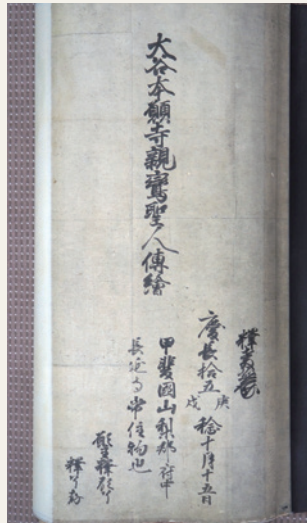 大谷本願寺親鸞聖人傳繪
釋
慶長拾五庚戌稔十月十五日
甲斐國山梨郡府中
長延寺常住物也
願主釋
釋